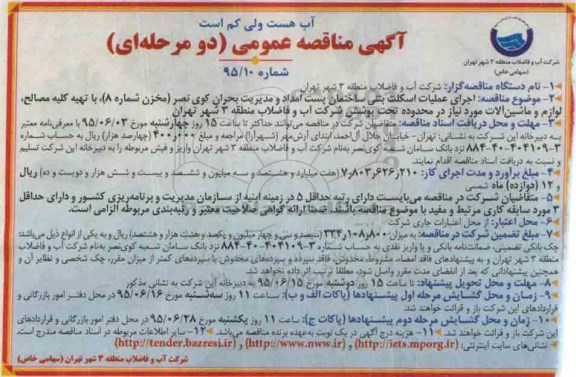 آب هست ولی کم است
آگهی مناقصه عمومی (دو مرحله‌ای)
شماره ۹۵/۱۰
شرکت آب و فاضلاب منطقه ۳ شهر تهران
(سهامی خاص)
۱- نام دستگاه مناقصه‌گزار: شرکت آب و فاضلاب منطقه ۳ شهر تهران
۲- موضوع مناقصه: اجرای عملیات اسکلت بتنی ساختمان پست امداد و مدیریت بحران کوی نصر (مخزن شماره ۸)، با تهیه کلیه مصالح،
لوازم و ماشین‌آلات مورد نیاز در محدوده تحت پوشش شرکت آب و فاضلاب منطقه ۳ شهر تهران
۳- مهلت و محل دریافت اسناد مناقصه: متقاضیان شرکت در مناقصه می‌توانند حداکثر تا ساعت ۱۵ روز چهارشنبه مورخ ۹۵/۰۶/۰۳ با معرفی‌نامه معتبر
به دبیرخانه این شرکت به نشانی: تهران- خیابان جلال آل‌احمد، ابتدای آرش مهر (شهرآرا) مراجعه و مبلغ ۴۰۰,۰۰۰ (چهارصد هزار) ریال به حساب شماره
۸۸۴-۴۰-۴۰۴۱۰۹-۳ نزد بانک سامان شعبه کوی‌نصر به‌نام شرکت آب و فاضلاب منطقه ۳ شهر تهران واریز و فیش مربوطه را به دبیرخانه این شرکت تسلیم
و نسبت به دریافت اسناد مناقصه اقدام نمایند.
۴- مبلغ برآورد و مدت اجرای کار: ۷,۸۰۳,۶۲۶,۲۱۰ (هفت میلیارد و هشتصد و سه میلیون و ششصد و بیست و شش هزار و دویست و ده) ریال
و ۱۲ (دوازده) ماه شمسی
۵- متقاضیان شرکت در مناقصه می‌بایست دارای رتبه حداقل ۵ در زمینه ابنیه از سازمان مدیریت و برنامه‌ریزی کشور و دارای حداقل
۳ مورد سابقه کاری مرتبط و مفید با موضوع مناقصه باشند. ضمنا ارائه گواهی صلاحیت معتبر و رتبه‌بندی مربوطه الزامی است.
۶- محل اعتبار: از محل اعتبارات جاری شرکت
۷- مبلغ تضمین شرکت در مناقصه: به میزان ۳۳۴,۱۰۸,۸۰۰ (سیصد و سی و چهار میلیون و یکصد و هشت هزار و هشتصد) ریال و به یکی از انواع ذیل می‌باشد:
چک بانکی تضمینی، ضمانتنامه بانکی و یا واریز نقدی به حساب شماره ۸۸۴-۴۰-۴۰۴۱۰۹-۳ نزد بانک سامان شعبه کوی‌نصر به‌نام شرکت آب و فاضلاب
منطقه ۳ شهر تهران و به پیشنهادهای فاقد امضاء، مشروط، مخدوش، فاقد سپرده و سپرده‌های مخدوش یا سپرده‌های کمتر از میزان مقرر، چک شخصی و نظایر آن و
همچنین پیشنهاداتی که بعد از انقضای مدت مقرر واصل شود، مطلقا ترتیب اثر داده نخواهد شد.
۸- مهلت و محل تحویل پیشنهاد: تا ساعت ۱۵ روز دوشنبه مورخ ۹۵/۰۶/۱۵ به دبیرخانه این شرکت به نشانی مذکور
۹- زمان و محل گشایش مرحله اول پیشنهادها (پاکات الف و ب): ساعت ۱۱ روز سه‌شنبه مورخ ۹۵/۰۶/۱۶ در محل دفتر امور بازرگانی و
قراردادهای این شرکت باز و قرائت خواهند شد.
۱۰- زمان و محل گشایش مرحله دوم پیشنهادها (پاکات ج): ساعت ۱۱ روز یکشنبه مورخ ۹۵/۰۶/۲۸ در محل دفتر امور بازرگانی و قراردادهای
این شرکت باز و قرائت خواهند شد. ۱۱- هزینه درج آگهی در یک نوبت به‌عهده برنده مناقصه می‌باشد. ۱۲- سایر اطلاعات مربوطه در اسناد مناقصه مندرج است.
نشانی‌های سایت اینترنتی: (http://iets.mporg.ir) و (http://www.nww.ir) و (http://tender.bazresi.ir)
شرکت آب و فاضلاب منطقه ۳ شهر تهران (سهامی خاص)